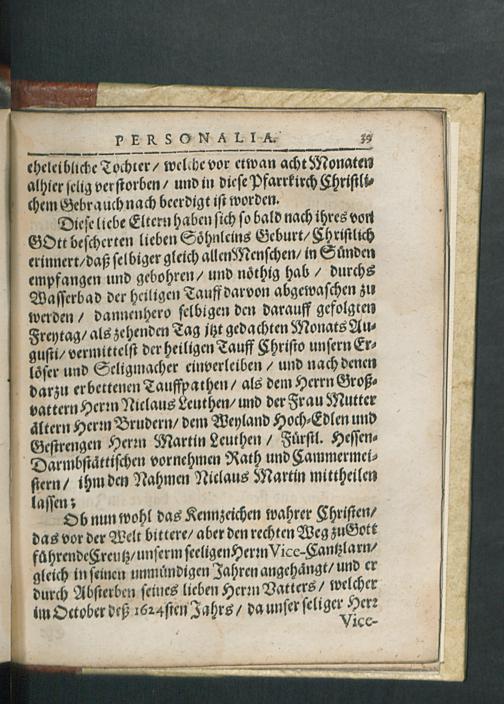 PERSONALIA. 39
eheleibliche Tochter / welche vor etwan acht Monaten
alhier selig verstorben / und in diese Pfarrkirch Christli-
chem Gebrauch nach beerdigt ist worden.
Diese liebe Eltern haben sich so bald nach ihres von
GOtt bescherten lieben Söhnleins Geburt / Christlich
erinnert / daß selbiger gleich allen Menschen / in Sünden
empfangen und gebohren / und nöthig hab / durchs
Wasserbad der heiligen Tauff darvon abgewaschen zu
werden / dannenhero selbigen den darauff gefolgten
Freytag / als zehenden Tag jtzt gedachten Monats Au-
gusti / vermittelst der heiligen Tauff Christo unsern Er-
löser und Seligmacher einverleiben / und nach denen
darzu erbettenen Tauffpathen / als dem Herrn Groß-
vattern Herrn Niclaus Leuthen / und der Frau Mutter
ältern Herrn Brudern / dem Weyland Hoch-Edlen und
Gestrengen Herrn Martin Leuthen / Fürstl. Hessen-
Darmbstättischen vornehmen Rath und Cammermei-
stern / ihm den Nahmen Niclaus Martin mittheilen
lassen;
Ob nun wohl das Kennzeichen wahrer Christen /
das vor der Welt bittere / aber den rechten Weg zu Gott
führende Creutz / unserm seeligen Herrn Vice-Cantzlarn /
gleich in seinen unmündigen Jahren angehängt / und er
durch Absterben seines lieben Herrn Vatters / welcher
im October deß 1624sten Jahrs / da unser seliger Herr
Vice-